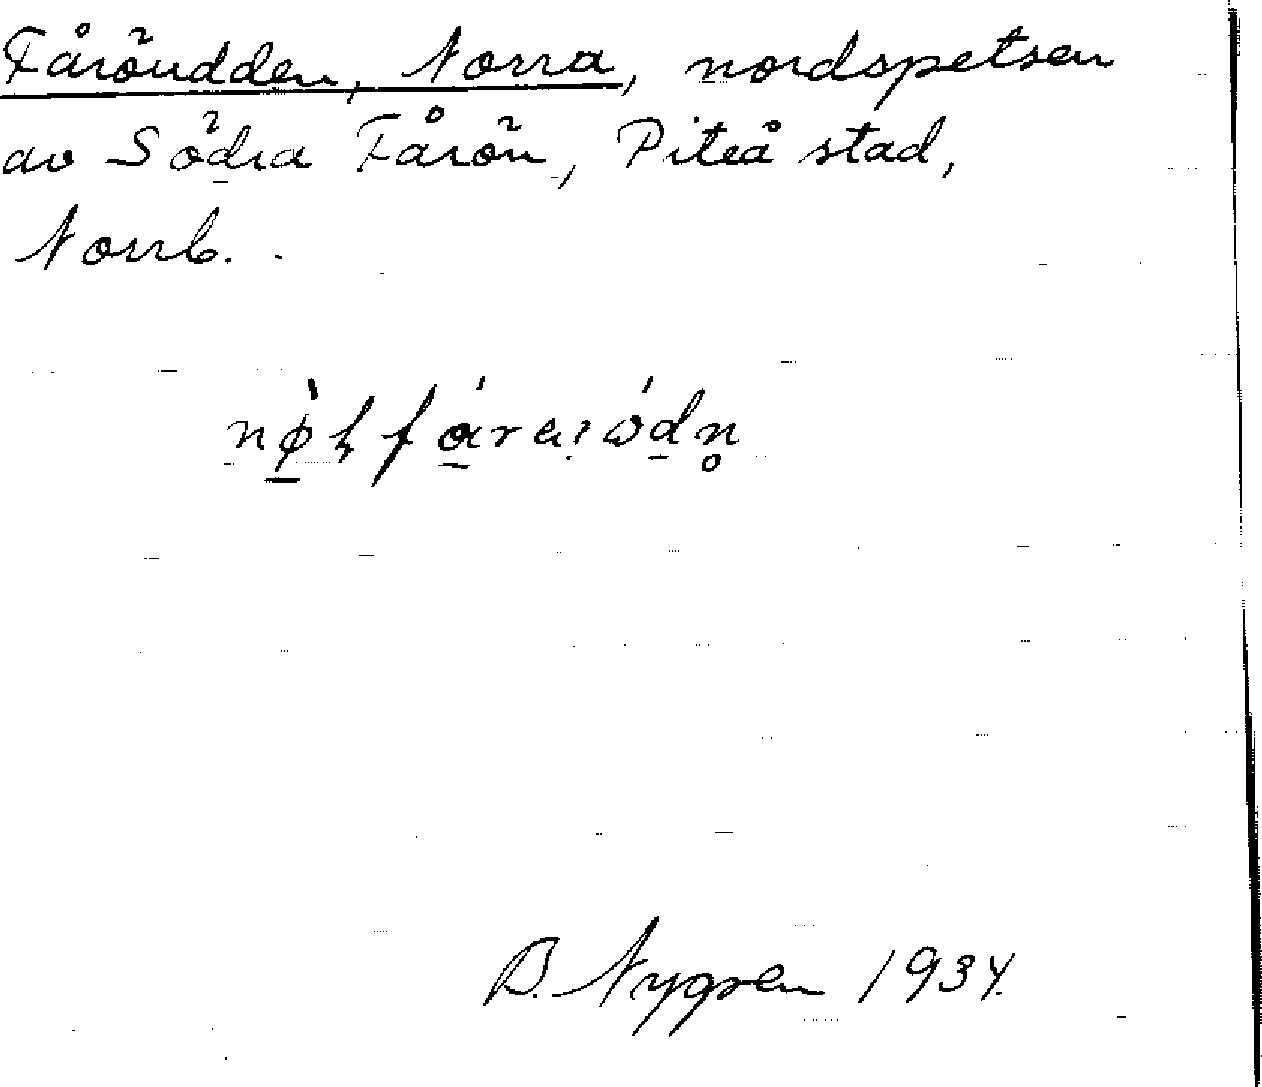 Fåröudden, Norra, nordspetsen
av Södra Fårön, Piteå stad,
Norrb.
B. Nygren 1934.